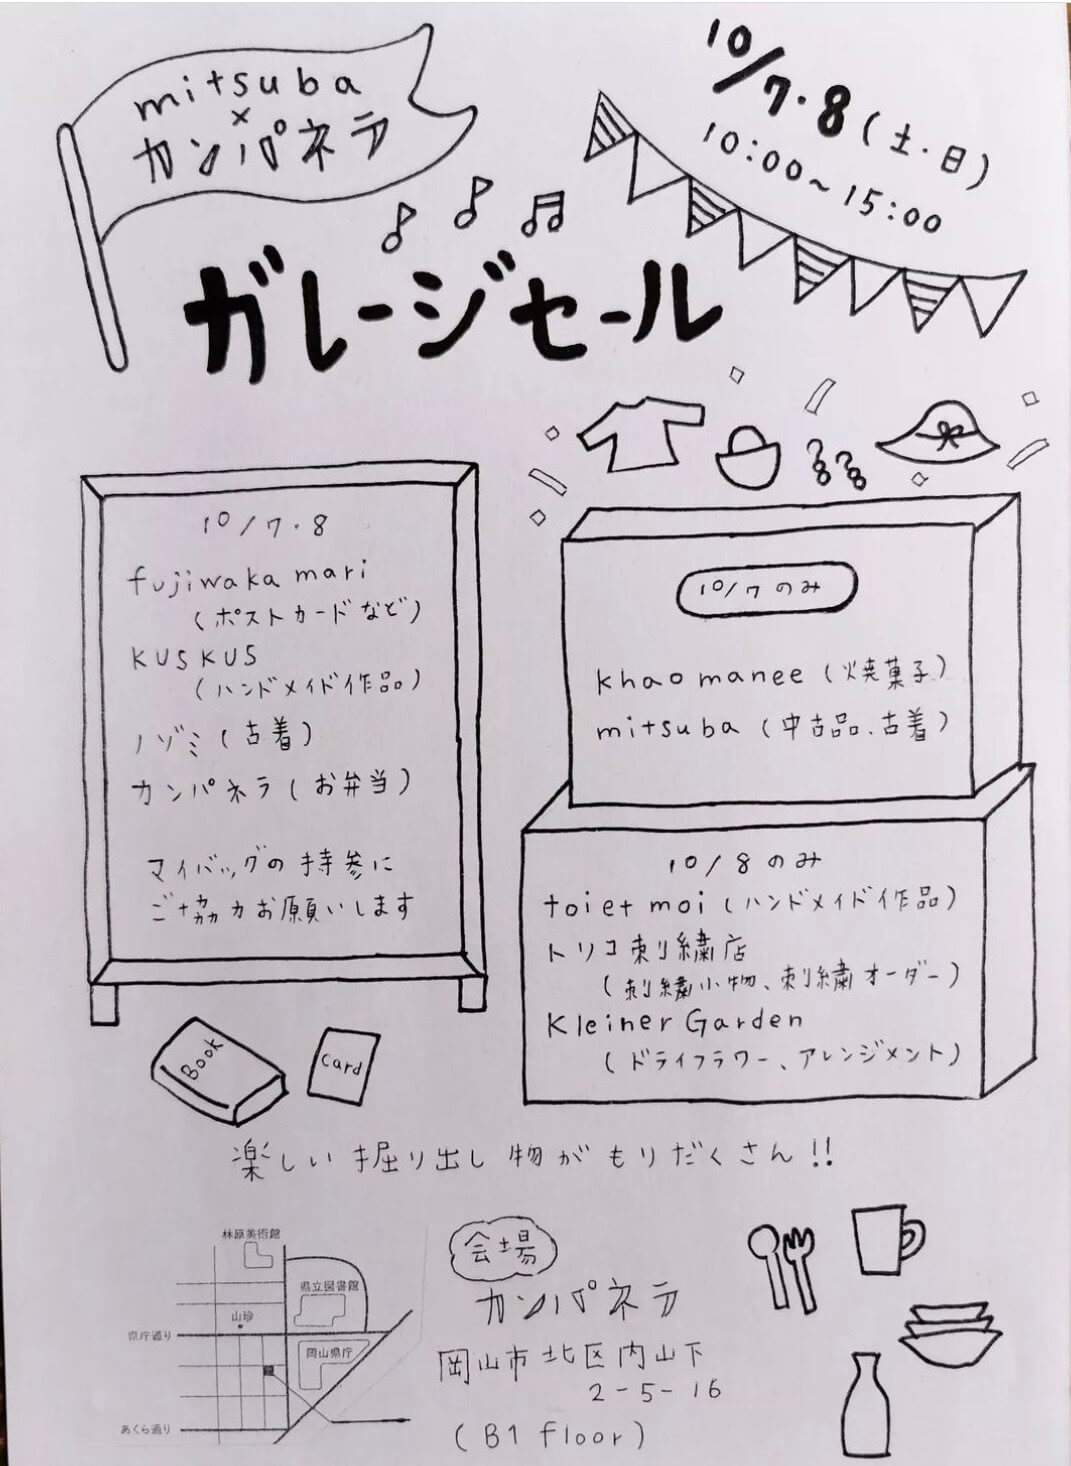 mitsuba
×
カンパネラ
10/7・8(土・日)
10:00〜15:00
ガレージセール
10/7・8
fujiwaka mari
(ポストカードなど)
KUSKUS
(ハンドメイド作品)
ノゾミ(古着)
カンパネラ(お弁当)
マイバッグの持参に
ご協力お願いします
10/7のみ
khaomanee(焼菓子)
mitsuba(中古品、古着)
10/8のみ
toiet moi(ハンドメイド作品)
トリコ刺繍店
(刺繍小物、刺繍オーダー)
Kleiner Garden
(ドライフラワー、アレンジメント)
Book
Card
楽しい掘り出し物がもりだくさん!!
林原美術館
県立図書館
山珍
県庁通り
岡山県庁
あくら通り
会場
カンパネラ
岡山市北区内山下
2-5-16
(B1 floor)